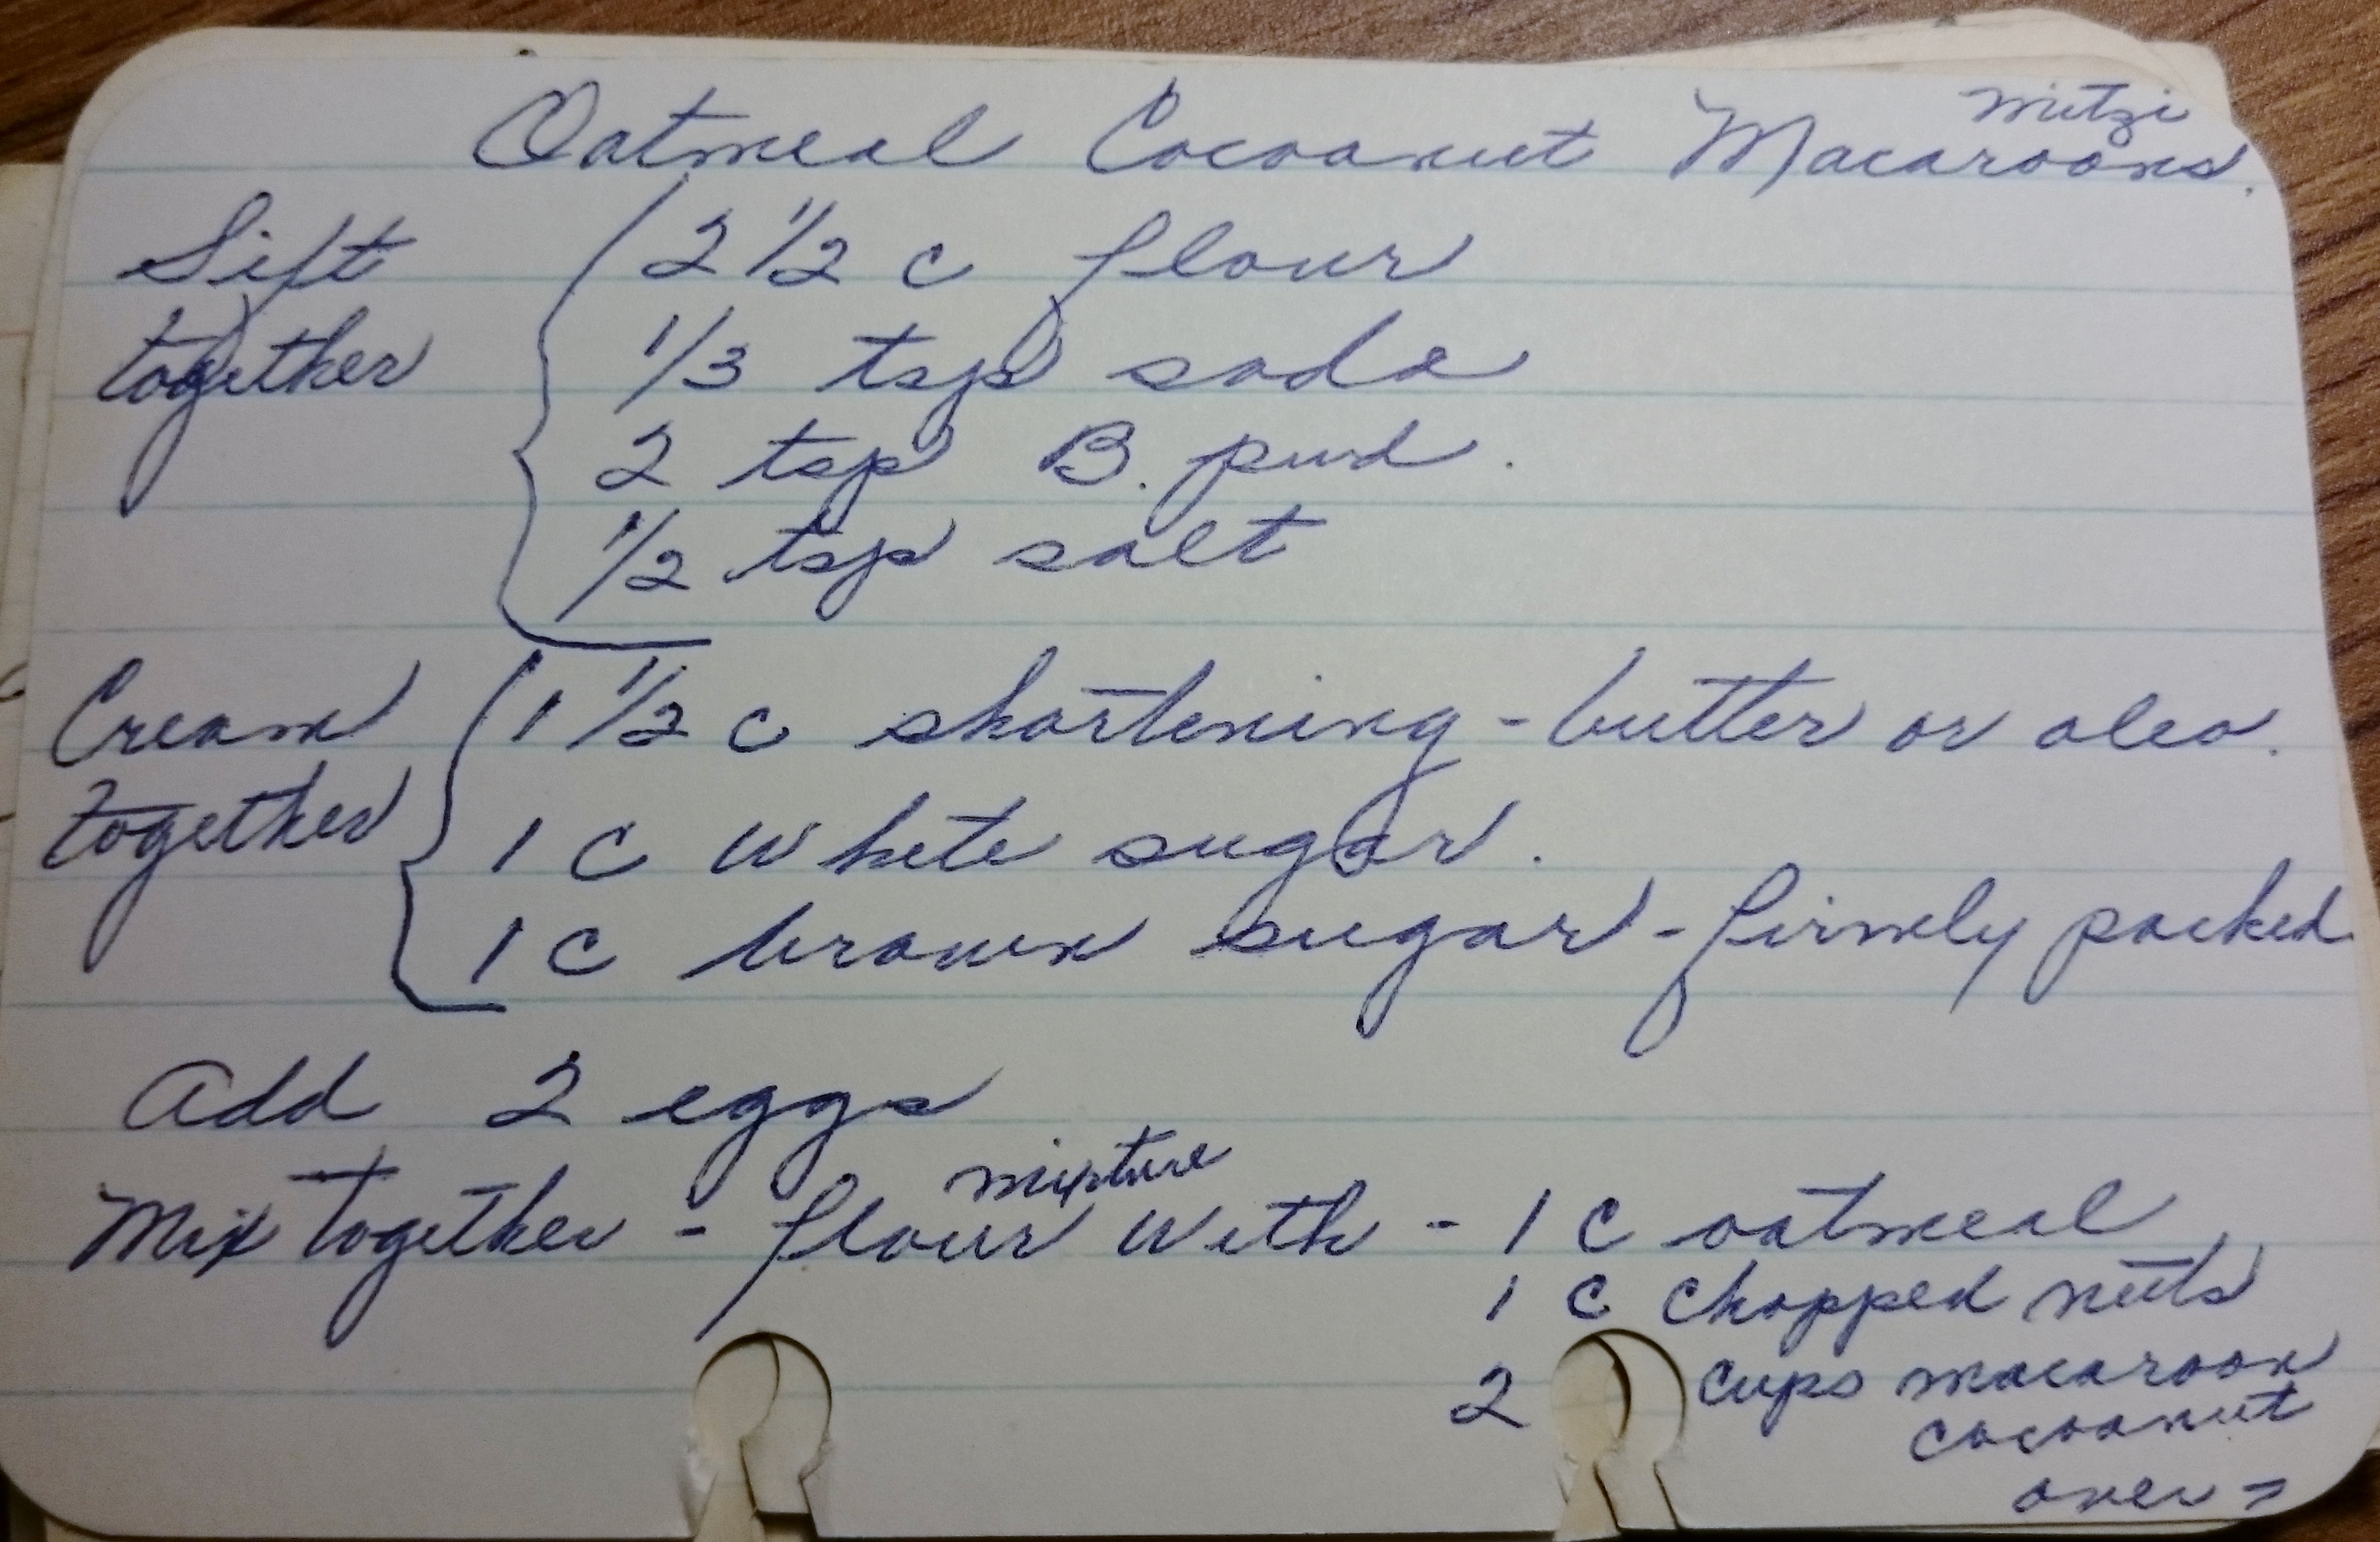 Mitzi
Oatmeal Cocoanut Macaroons.
Sift together
2 1/2 c flour
1/3 tsp soda
2 tsp B. pwd.
1/2 tsp salt
Cream together
1 1/2 c shortening - butter or oleo.
1 c white sugar.
1 c brown sugar - firmly packed
Add 2 eggs
mixture
Mix together - flour with - 1 c oatmeal
1 c chopped nuts
2 cups macaroon
cocoanut
over =